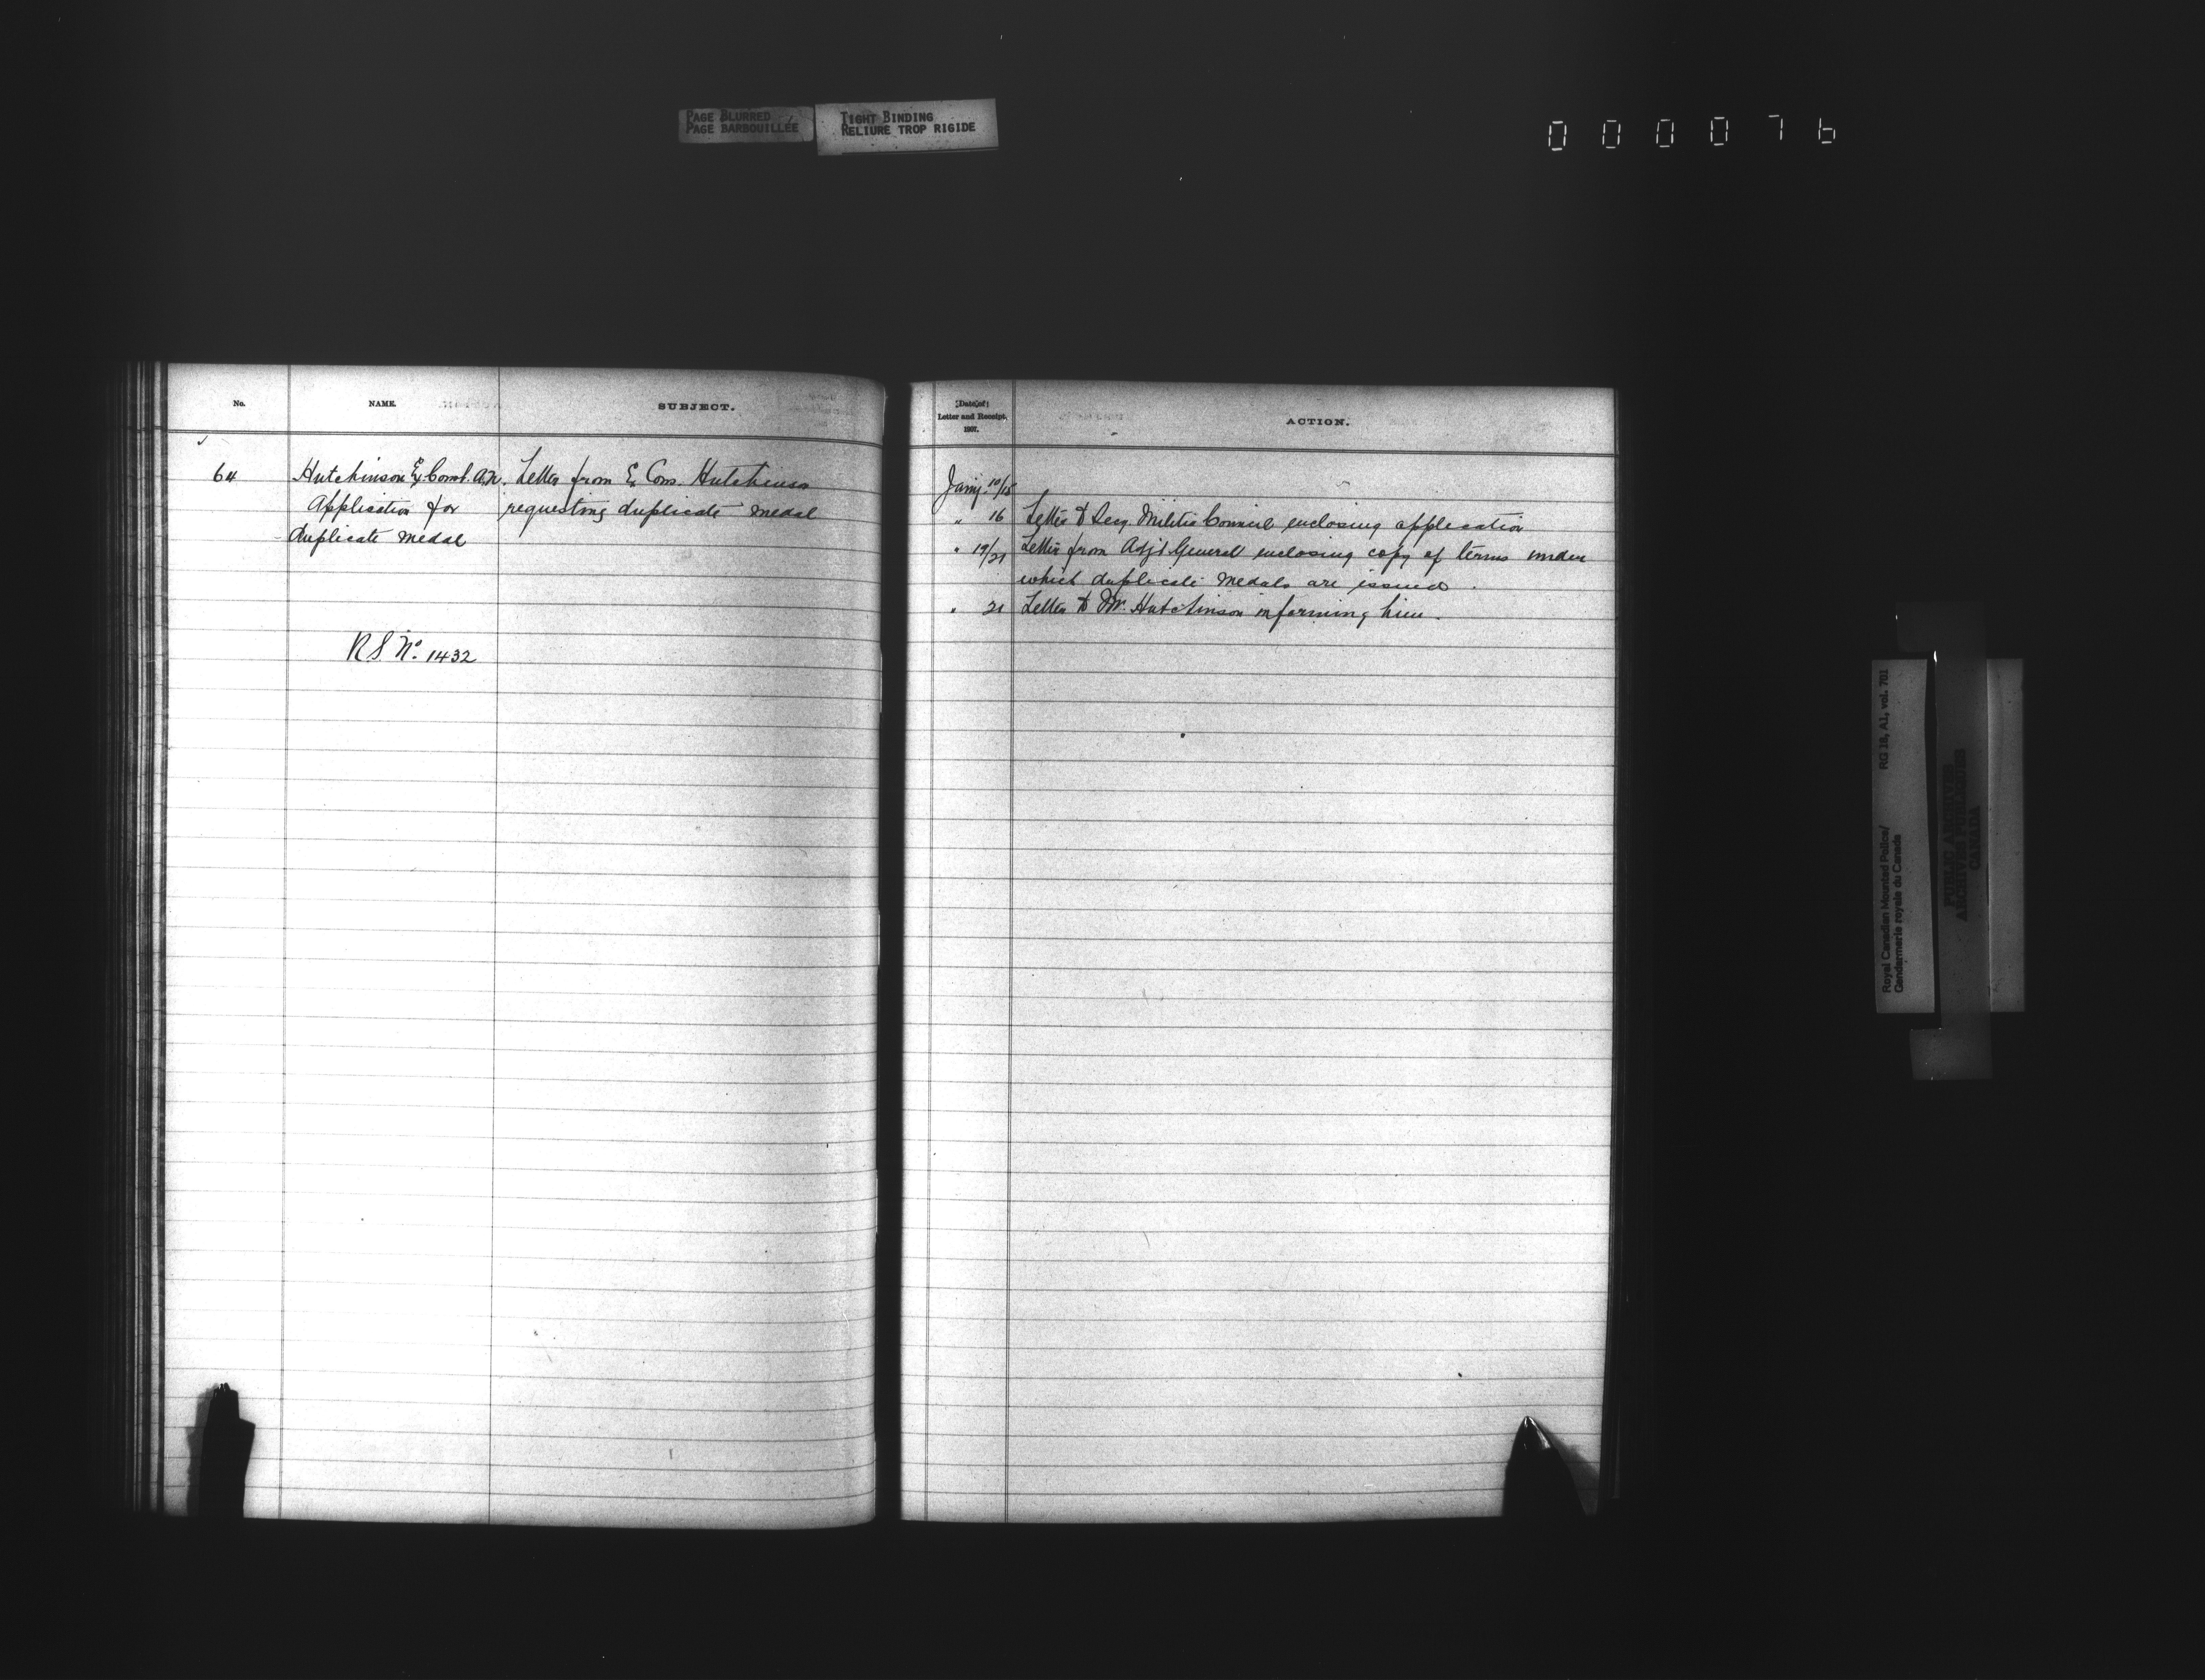 PAGE BLURRED
PAGE BARBOUILLÉE
TIGHT BINDING
RELIURE TROP RIGIDE
000076
No.
NAME.
SUBJECT.
64
Hutchinson Ex Const. A.N.
Application for
duplicate medal
R.S. No. 1432
Letter from Ex Cons. Hutchinson
requesting duplicate medal
Date of
Letter and Receipt.
1907.
ACTION.
Jany. 10/15
" 16 Letter to Secy. Militia Council enclosing application
" 19/21 Letter from Adjt General enclosing copy of terms under
which duplicate medals are issued.
" 21 Letter to Mr. Hutchinson informing him.
Royal Canadian Mounted Police/ RG 18, A1, vol. 701
Gendarmerie royale du Canada
PUBLIC ARCHIVES
ARCHIVES PUBLIQUES
CANADA